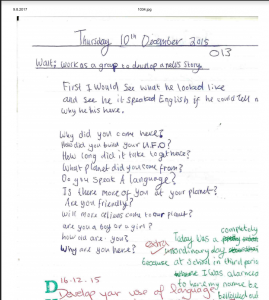 9.8.2017
1009.jpg
Thursday 10th December 2015
013
Walt: work as a group to develop a news story
First I would see what he looked like
and see if he speaked English if he could tell
why his here.
Why did you come here?
How did you build your U.F.O?
How long did it take to get here?
What planet did you come from?
Do you speak a language?
Is there more of you at your planet?
Are you friendly?
Will more aliens come to our planet?
are you a boy or a girl?
how old are you?
Why are you here?
completely
Today was a
ordinary day
because at school in third
I was
to have my name be
16.12.15
Develop your use of language